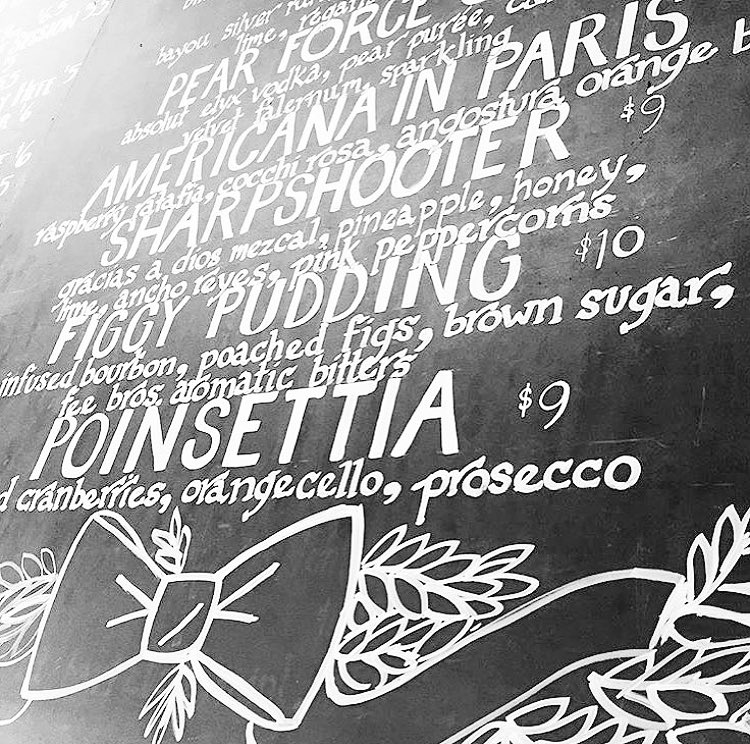 bayou silver
lime,
PEAR FORCE
absolut elyx vodka, pear purée,
velvet falernum, sparkling
AMERICANA IN PARIS
raspberry ratafia, cocchi rosa, angostura orange b
SHARPSHOOTER $9
gracias a dios mezcal, pineapple, honey,
lime, ancho reyes, pink peppercorns
FIGGY PUDDING $10
infused bourbon, poached figs, brown sugar,
fee bros aromatic bitters
POINSETTIA $9
d cranberries, orangecello, prosecco